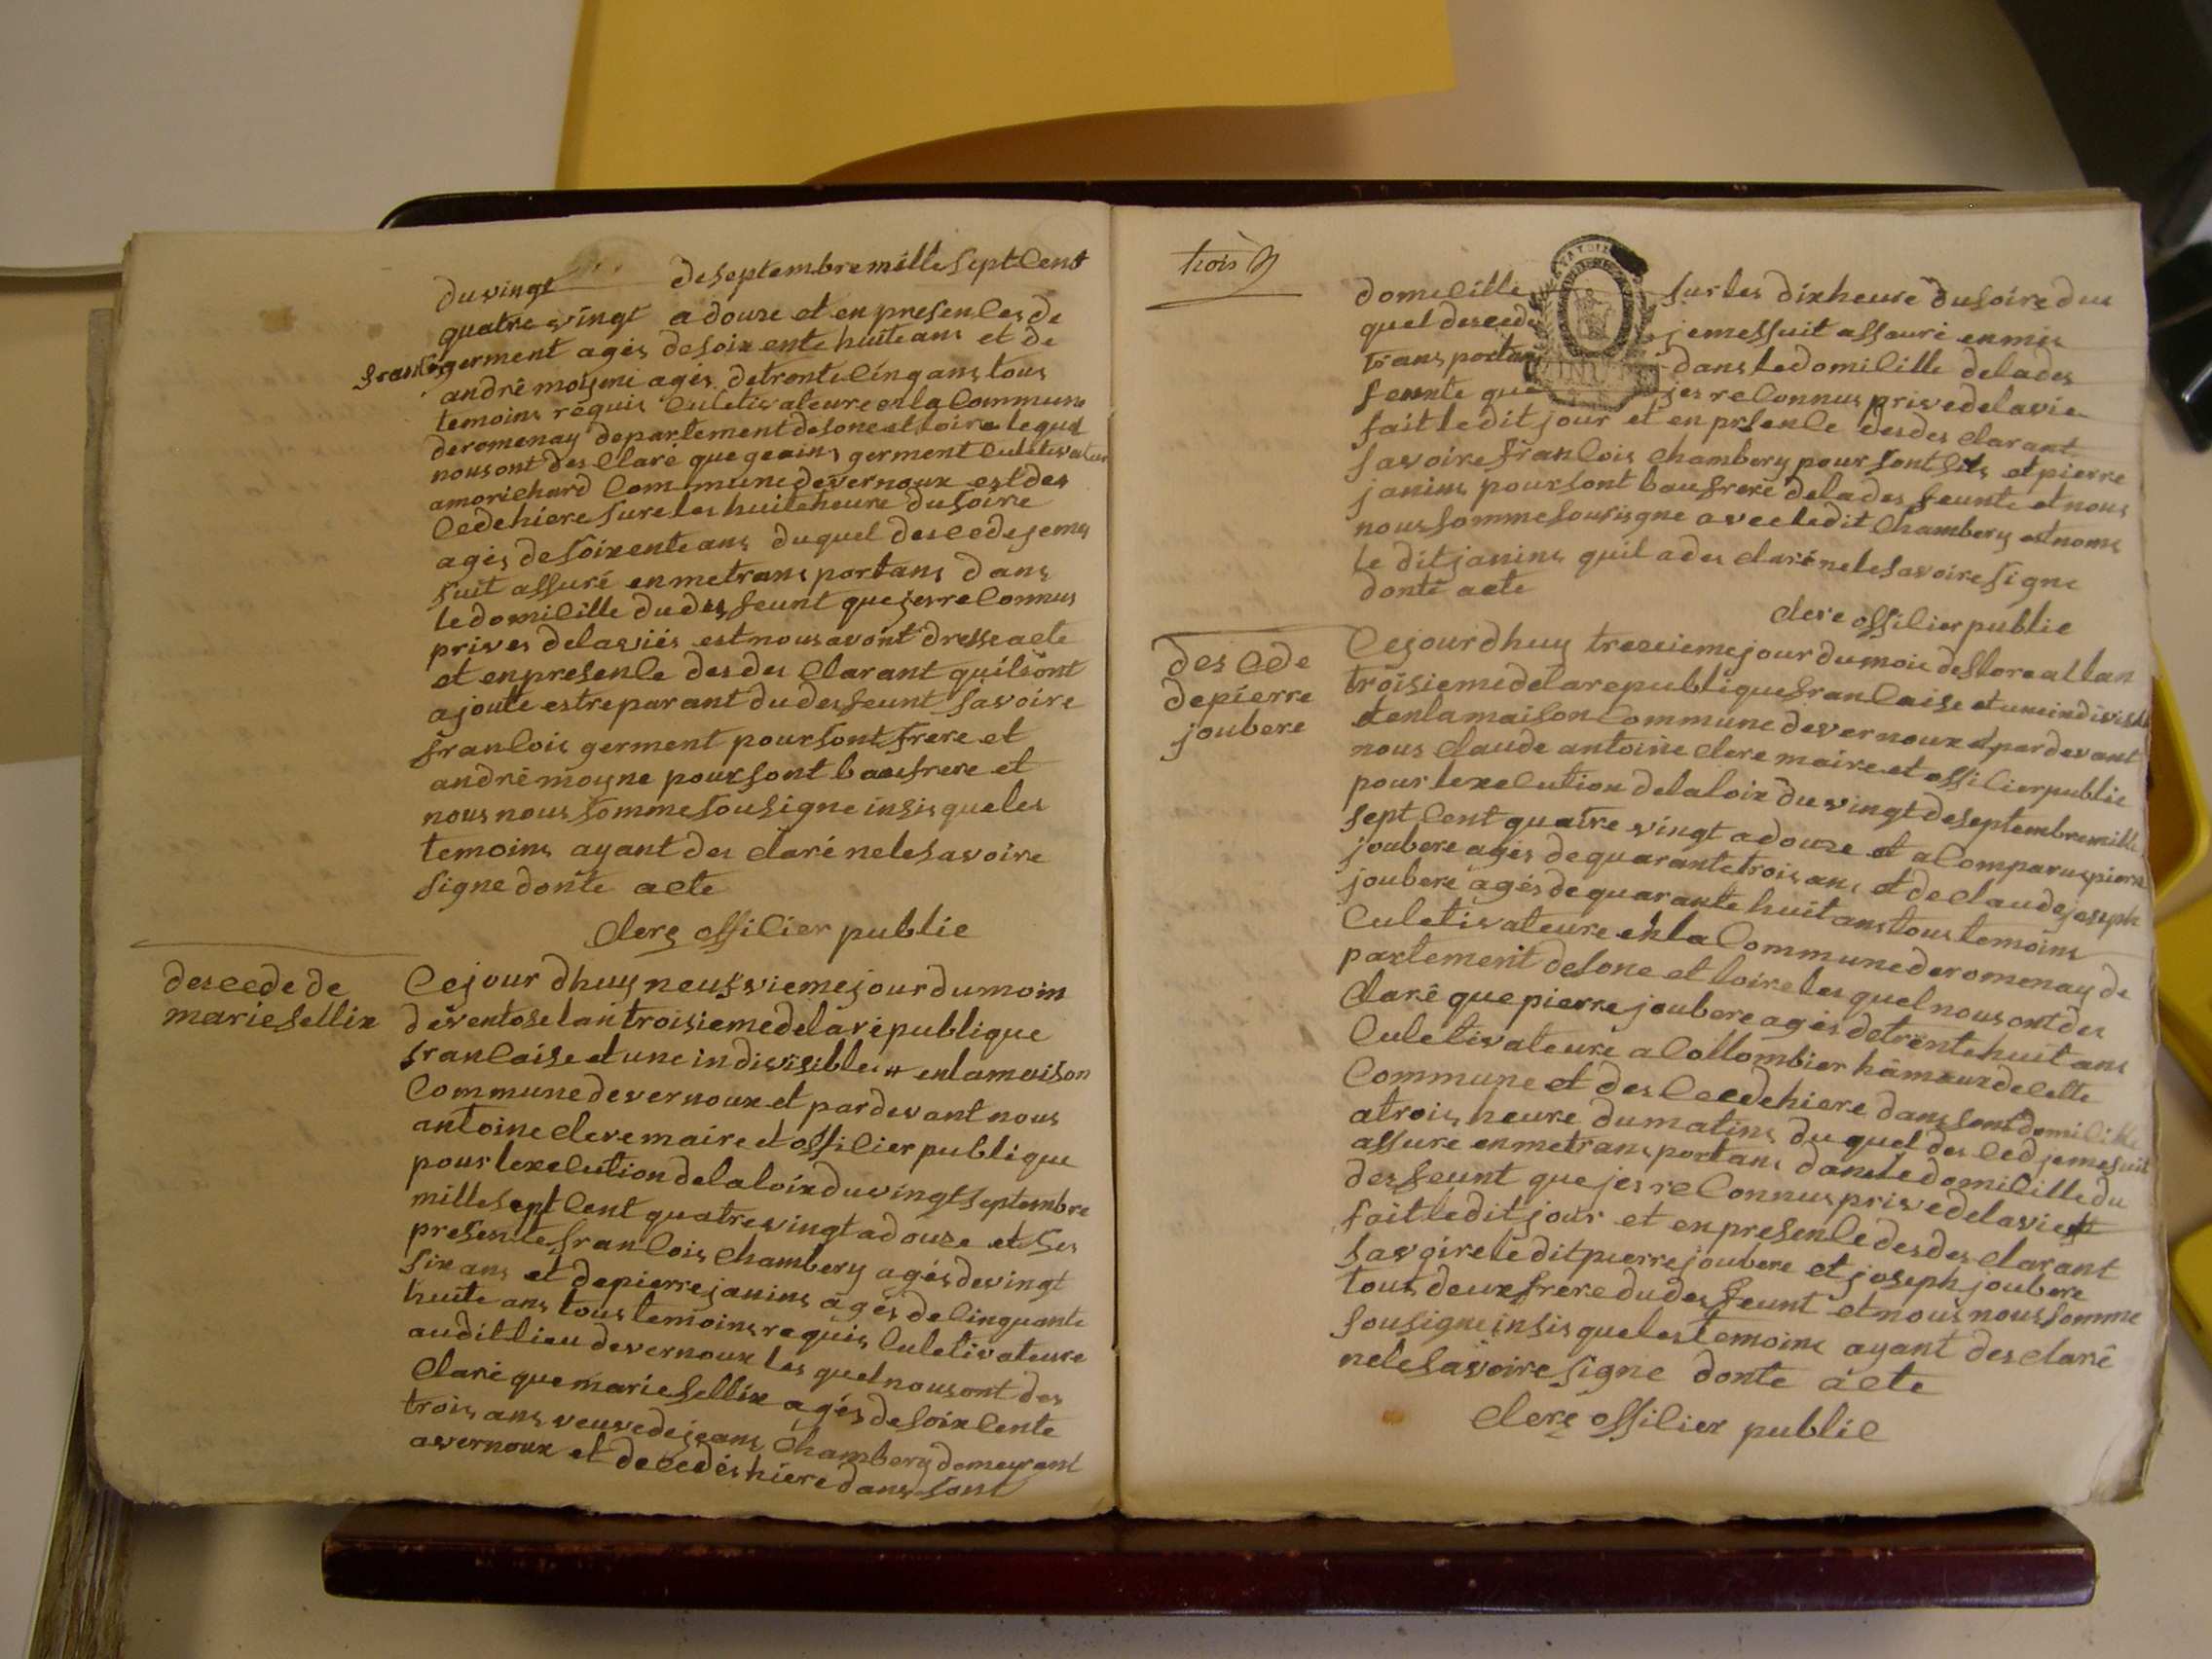 du vingt de septembre mille sept Cent
quatre vingt a douze et en presences de
franlois germent agés de soix ente huite ans et de
andré moyene agés de trente cinq ans tous
temoins requis Culetivateure en la Commune
de romenay departement de sone et loire le quel
nous ont des Claré que geains germent Culetivateur
a morichard Commune de vernoux est des
Cede hiere sure les huite heure du soire
agés de soixente ans du quel descede je me
suit assuré en me trans portans dans
le domicille du des feunt que jes re Connus
prives de la viés est nous avont dresse acte
et en presence des des Clarant quil sont
ajouté estre parant du des feunt savoire
francois germent pour sont frere et
andré moyne pour sont baufrere et
nous nous somme sousigne insis que les
temoins ayant des claré ne le savoire
signe donte acte
Clere officier public
descede de
marie sellix
Ce jour dhuy neufvieme jour du moin
de ventose lan troisieme de la republique
francaise et une indivisible en la maison
Commune de vernoux et par devant nous
antoine clere maire et officier publique
pour lexecution de la loix du vingt septembre
mille sept Cent quatre vingt a douze et Ses
presente francois Chambery agés de vingt
six ans et de pierre janins agés de cinquante
huite ans tous temoins requis Culetivateure
au dit lieu de vernoux les quel nous ont des
Claré que marie sellix agés de soix cente
trois ans veuve de jeans Chambery demeurant
a vernoux et decedés hiere dans sont
trois
domicille sur les dix heure du soire du
quel descede je mes suit assuré en mes
trans portans dans le domicille de la des
feunte que jes re Connus prive de la vie
fait le dit jour et en prsence des des Clarant
savoire francois Chambery pour sont fils et pierre
janins pour sont baufrere de la des feunte et nous
nous somme sousigne avec le dit Chambery et nome
le dit janins quil a des claré ne le savoire signe
donte acte
clere officier public
des cede
de pierre
joubere
Ce jour dhuy treczieme jour du mois de floreal lan
troisieme de la republique francaise et une indivisible
et en la maison Commune de vernoux et par devant
nous claude antoine clere maire et officier public
pour lexecution de la loix du vingt de septembre mille
sept Cent quatre vingt a douze et a Comparus pierre
joubere agés de quarante trois ans et de claude joseph
joubere agés de quarante huit ans tous temoins
Culetivateure en la Commune de romenay de
partement de sone et loire les quel nous ont des
Claré que pierre joubere agés de trente huit ans
Culetivateure a Collombier hameaux de cette
Commune et des Ceede hiere dans sont domicille
a trois heure du matins du quel des Ced je me suit
assuré en me trans portans dans le domicille du
des feunt que jes re Connus prive de la vie et
fait le dit jour et en presence des des clarant
savoire le dit pierre joubere et joseph joubere
tous deux frere du des feunt et nous nous somme
sousigne insis que les temoins ayant des claré
ne le savoire signe donte acte
clere officier public